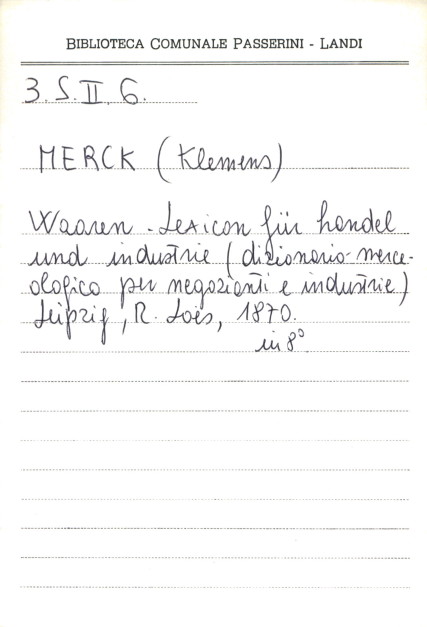 BIBLIOTECA COMUNALE PASSERINI - LANDI
3. S. II. 6.
MERCK (Klemens)
Waaren - Lexicon für handel
und industrie (dizionario merce-
ologico per negozianti e industrie)
Leipzig, R. Loës, 1870.
in 8°